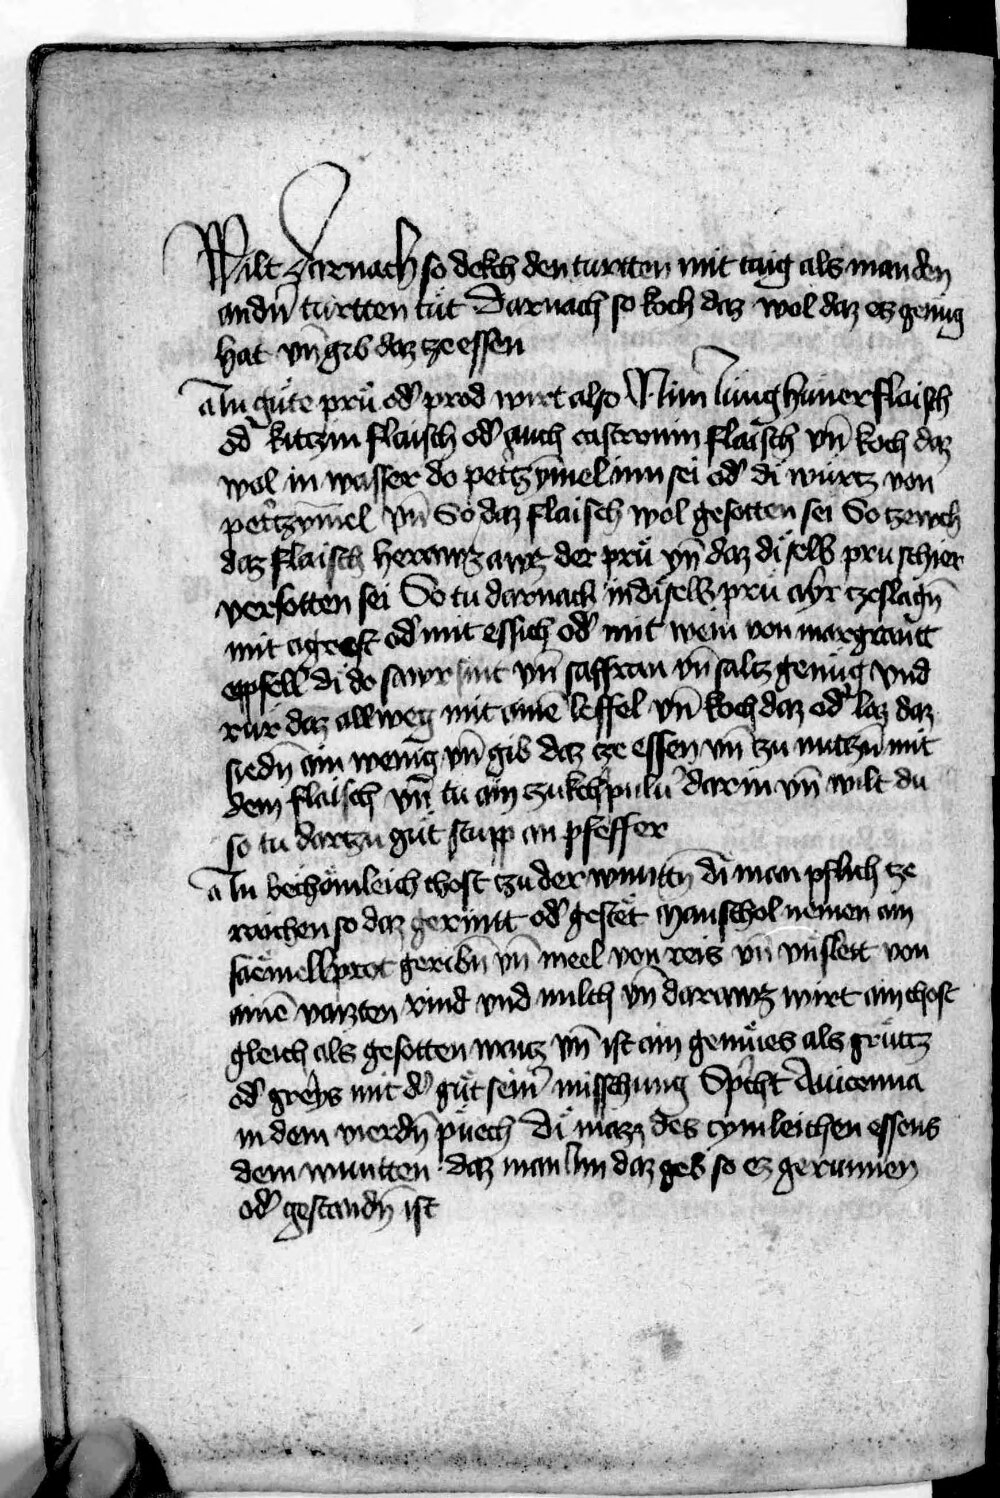 Wilt darnach so dekch den turtten mit taig als man den
andn̄ turtten tuͤt Darnach so koch daz wol daz ez genug
hat vn̄ gib daz ze essen
Ain guͤte pruͤ od̛ prod wirt also Nim Jung huͤner flaisch
od̛ kitzin flaisch od̛ auch castrounn flaisch vn̄ koch daz
wol in wasser do petʼzymel inn sei od̛ di wurtz von
petʼzymel vn̄ So daz flaisch wol gesotten sei So tzewch
daz flaisch herawz awz der pruͤ vn̄ daz diͤselb pru schier
versotten sei So tu darnach in diͤselb pruͤ ayr tzeslagn̄
mit agrest od̛ mit essich od̛ mit wein von margrantt
eppfell̛ di do sawr sint vn̄ saffran vn̄ saltz genug vnd
ruͤr daz allweg mit ainē leffel vn̄ koch daz od̛ laz daz
siedn̄ ain wenig vn̄ gib daz tze essen vn̄ tzu nutzn̄ mit
dem flaisch vn̄ tu ain tzukchʼpuluʼ darin vn̄ wilt du
so tu dartzu guͤt stupp an pfeffer
Ain bechoͤmleich chost tzu der wuntn̄ di man pflich tze
raichen so daz gerintt od̛ gestet Man schol nemen ain
saͤmellprot geribn̄ vn̄ meel von reis vn̄ vnslett von
ainē vaizten rind vnd milch vn̄ darawz wirt ain chost
gleich als gesotten waitz vn̄ ist ain gemuͤes als gruͤtz
od̛ greys mit d̛ guͤt seinʼ misschung Spʼcht Auicenna
in dem vierdn̄ puͤech Di mazz des cymleichen essens
dem wuntten daz man im daz geb so ez gerunnen
od̛ gestandn̄ ist